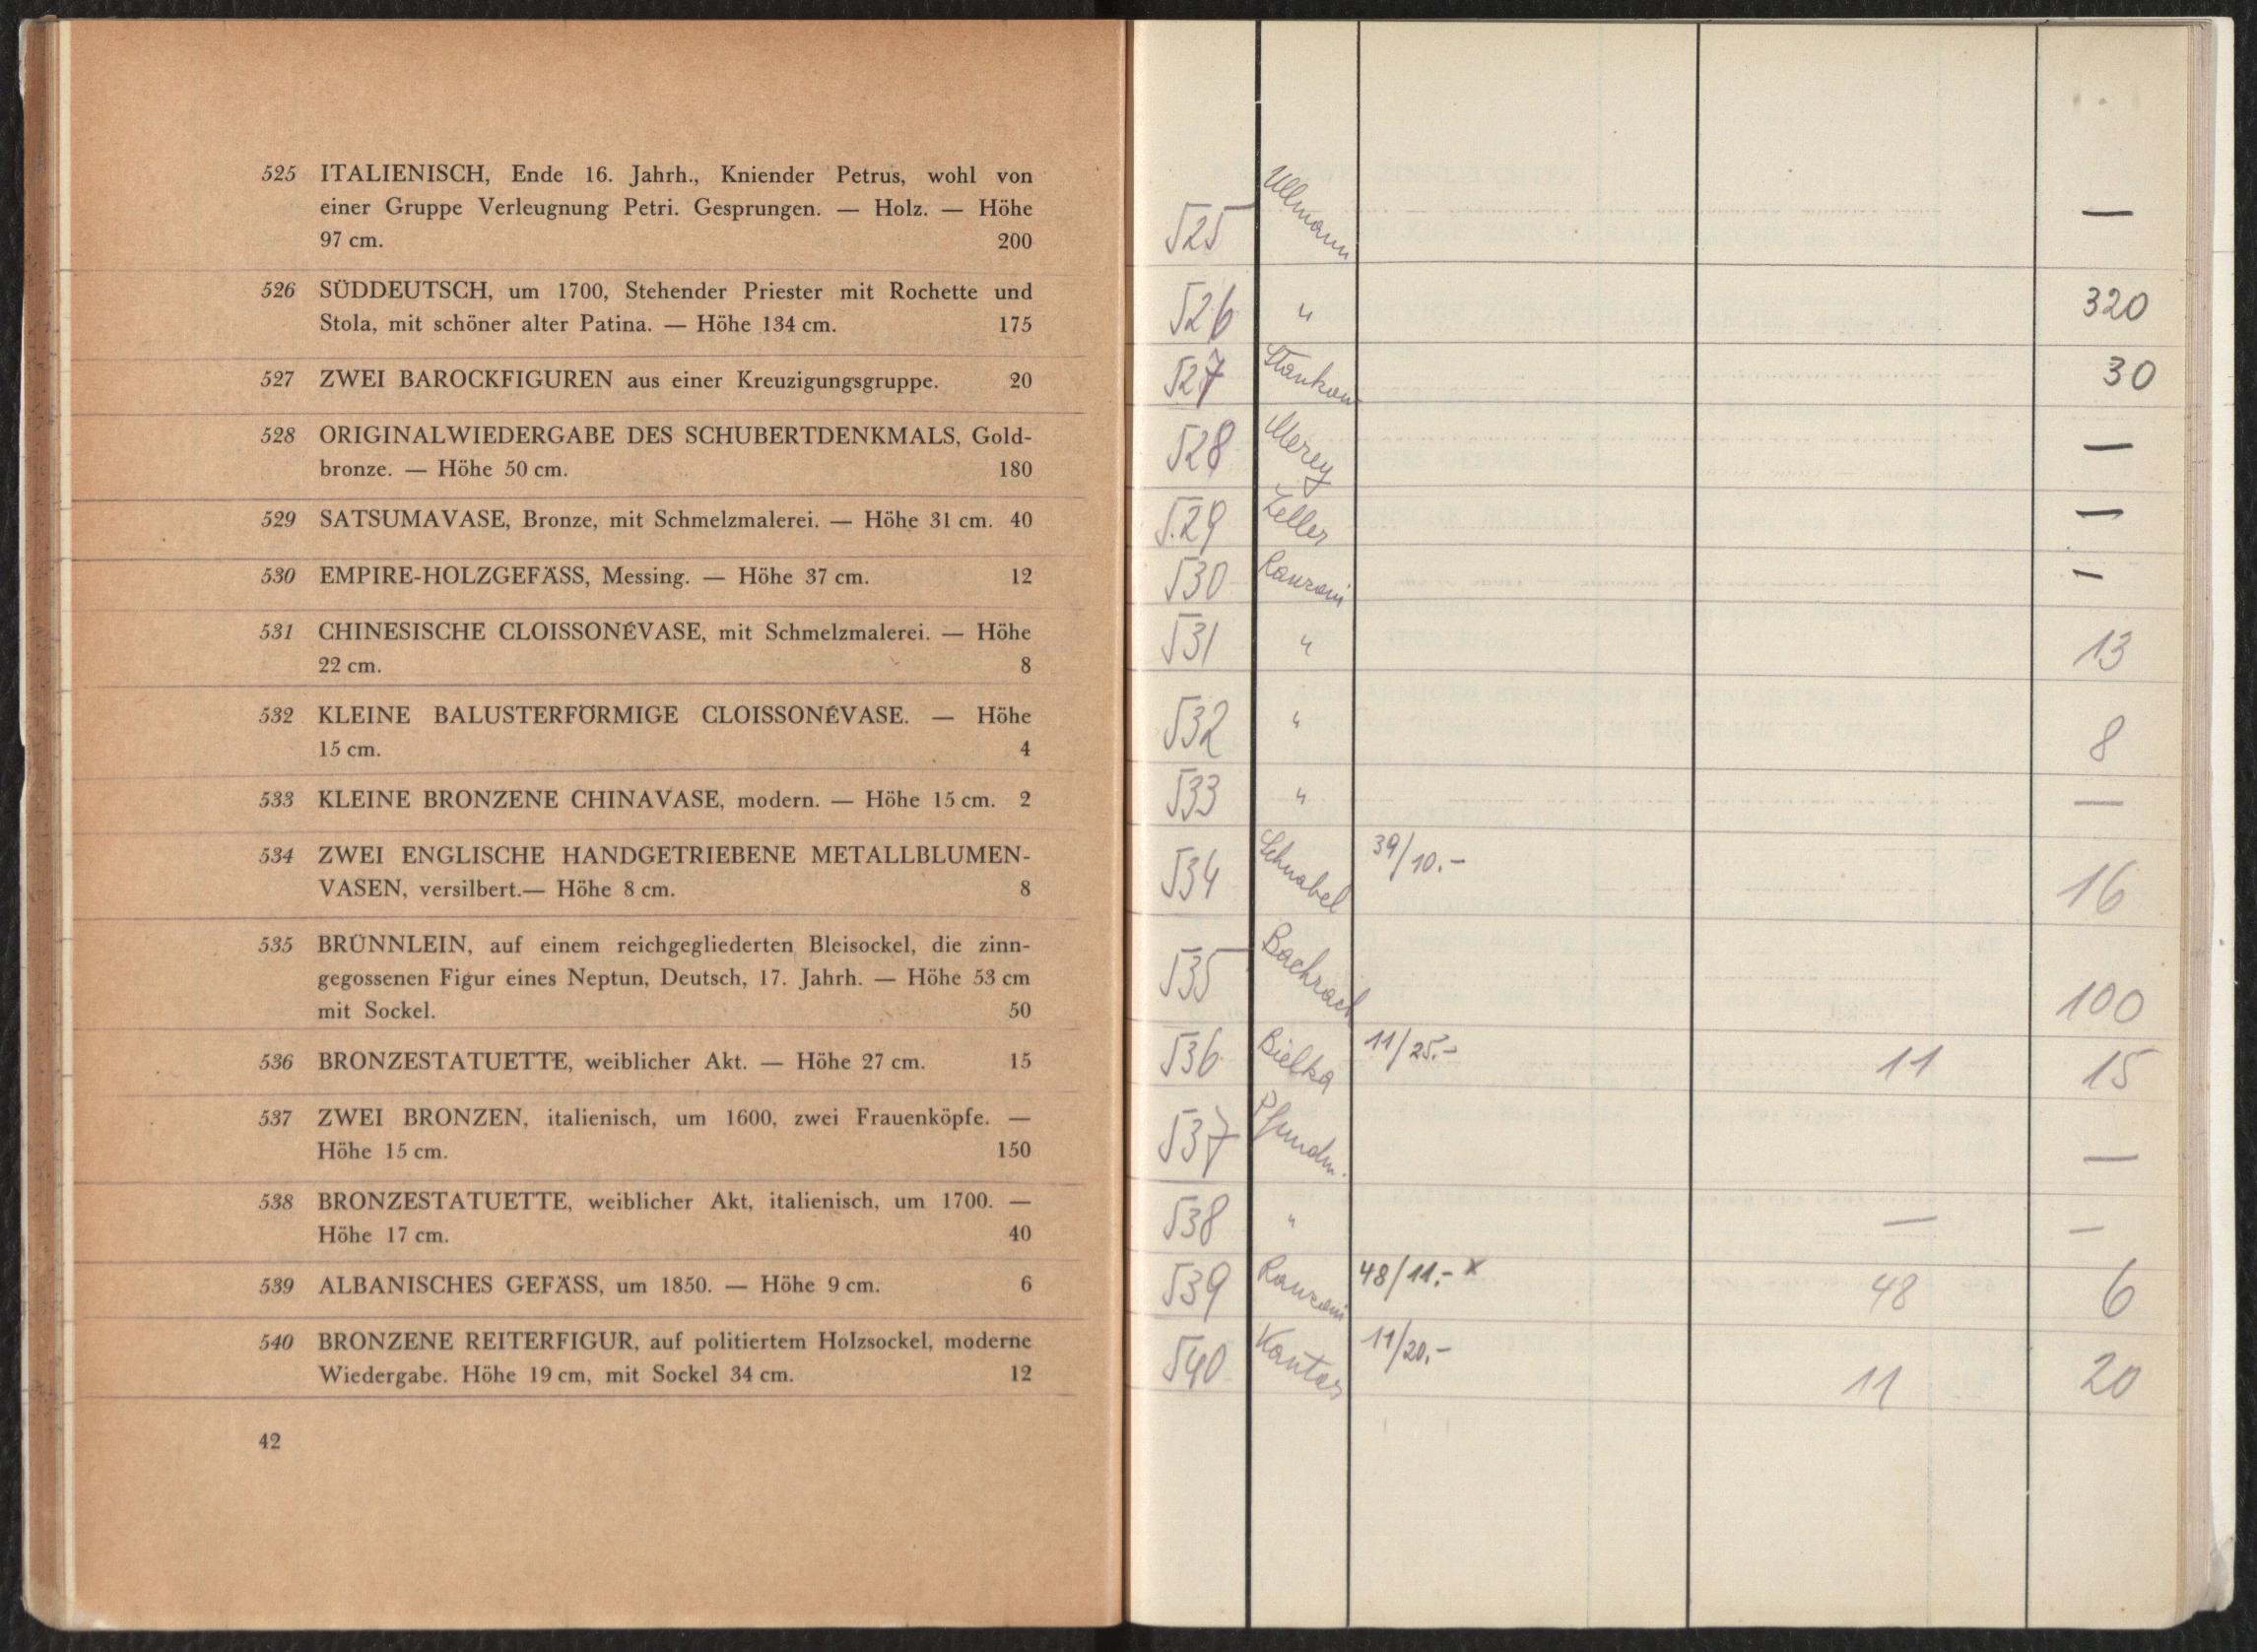 525 ITALIENISCH, Ende 16. Jahrh., Kniender Petrus, wohl von
einer Gruppe Verleugnung Petri. Gesprungen. — Holz. — Höhe
97 cm. 200
526 SÜDDEUTSCH, um 1700, Stehender Priester mit Rochette und
Stola, mit schöner alter Patina. — Höhe 134 cm. 175
527 ZWEI BAROCKFIGUREN aus einer Kreuzigungsgruppe. 20
528 ORIGINALWIEDERGABE DES SCHUBERTDENKMALS, Gold-
bronze. — Höhe 50 cm. 180
529 SATSUMAVASE, Bronze, mit Schmelzmalerei. — Höhe 31 cm. 40
530 EMPIRE-HOLZGEFÄSS, Messing. — Höhe 37 cm. 12
531 CHINESISCHE CLOISSONÉVASE, mit Schmelzmalerei. — Höhe
22 cm. 8
532 KLEINE BALUSTERFÖRMIGE CLOISSONÉVASE. — Höhe
15 cm. 4
533 KLEINE BRONZENE CHINAVASE, modern. — Höhe 15 cm. 2
534 ZWEI ENGLISCHE HANDGETRIEBENE METALLBLUMEN-
VASEN, versilbert.— Höhe 8 cm. 8
535 BRÜNNLEIN, auf einem reichgegliederten Bleisockel, die zinn-
gegossenen Figur eines Neptun, Deutsch, 17. Jahrh. — Höhe 53 cm
mit Sockel. 50
536 BRONZESTATUETTE, weiblicher Akt. — Höhe 27 cm. 15
537 ZWEI BRONZEN, italienisch, um 1600, zwei Frauenköpfe. —
Höhe 15 cm. 150
538 BRONZESTATUETTE, weiblicher Akt, italienisch, um 1700. —
Höhe 17 cm. 40
539 ALBANISCHES GEFÄSS, um 1850. — Höhe 9 cm. 6
540 BRONZENE REITERFIGUR, auf politiertem Holzsockel, moderne
Wiedergabe. Höhe 19 cm, mit Sockel 34 cm. 12
42
525 Ullmann —
526 " 320
527 30
528 Merey —
529 Zeller —
530 Ranzoni —
531 " 13
532 " 8
533 " —
534 Schnabel 39/10.- 16
535 Bachrach 100
536 Bielka 11/25.- 11 15
537 Pfundm. —
538 " — —
539 Ranzoni 48/11.- x 48 6
540 Kantor 11/20.- 11 20